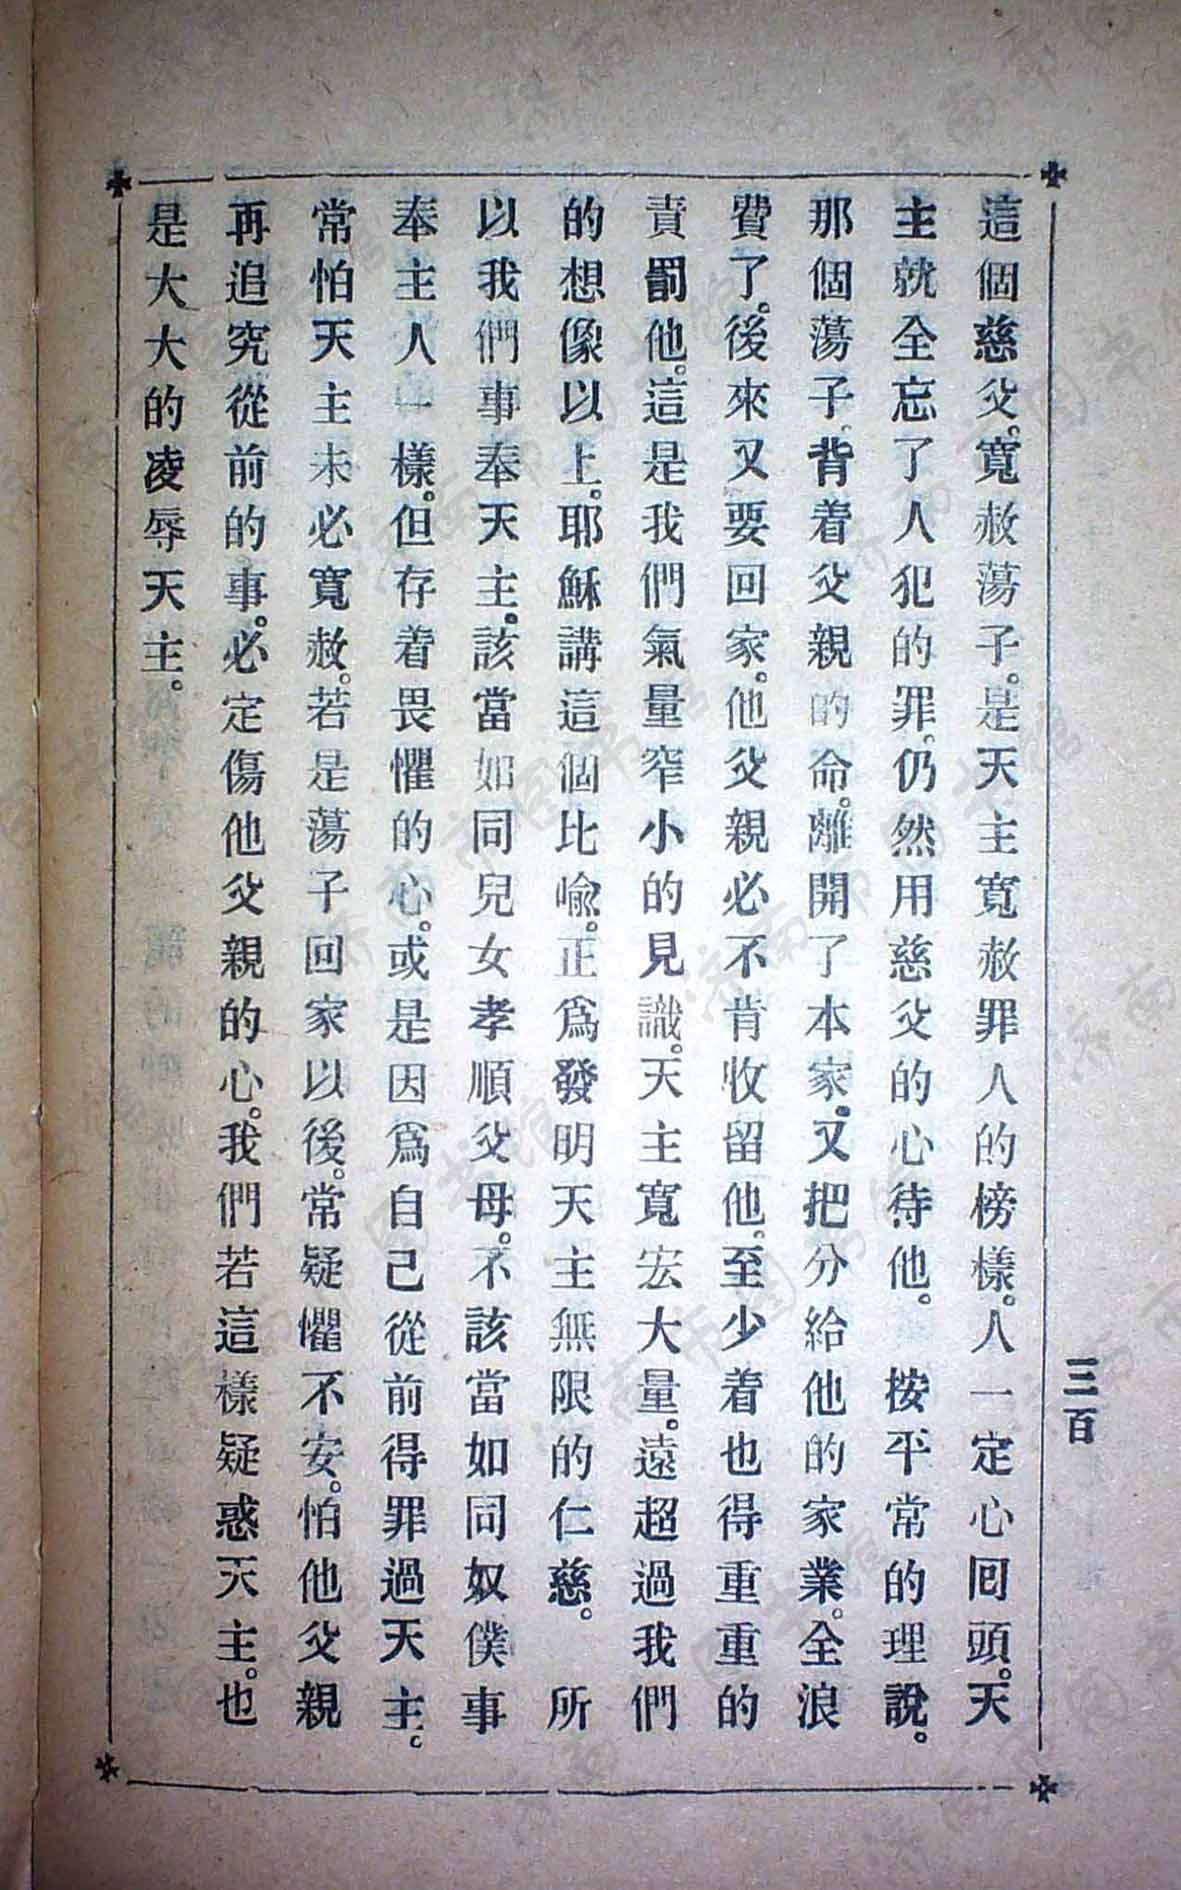 三百
這個慈父。寬赦蕩子。是天主寬赦罪人的榜樣。人一定心回頭。天
主就全忘了人犯的罪。仍然用慈父的心待他。　按平常的理說。
那個蕩子。背着父親的命。離開了本家。又把分給他的家業。全浪
費了。後來又要回家。他父親必不肯收留他。至少着也得重重的
責罰他。這是我們氣量窄小的見識。天主寬宏大量。遠超過我們
的想像以上。耶穌講這個比喩。正爲發明天主無限的仁慈。　所
以我們事奉天主。該當如同兒女孝順父母。不該當如同奴僕事
奉主人一樣。但存着畏懼的心。或是因爲自己從前得罪過天主。
常怕天主未必寬赦。若是蕩子回家以後。常疑懼不安。怕他父親
再追究從前的事。必定傷他父親的心。我們若這樣疑惑天主。也
是大大的凌辱天主。